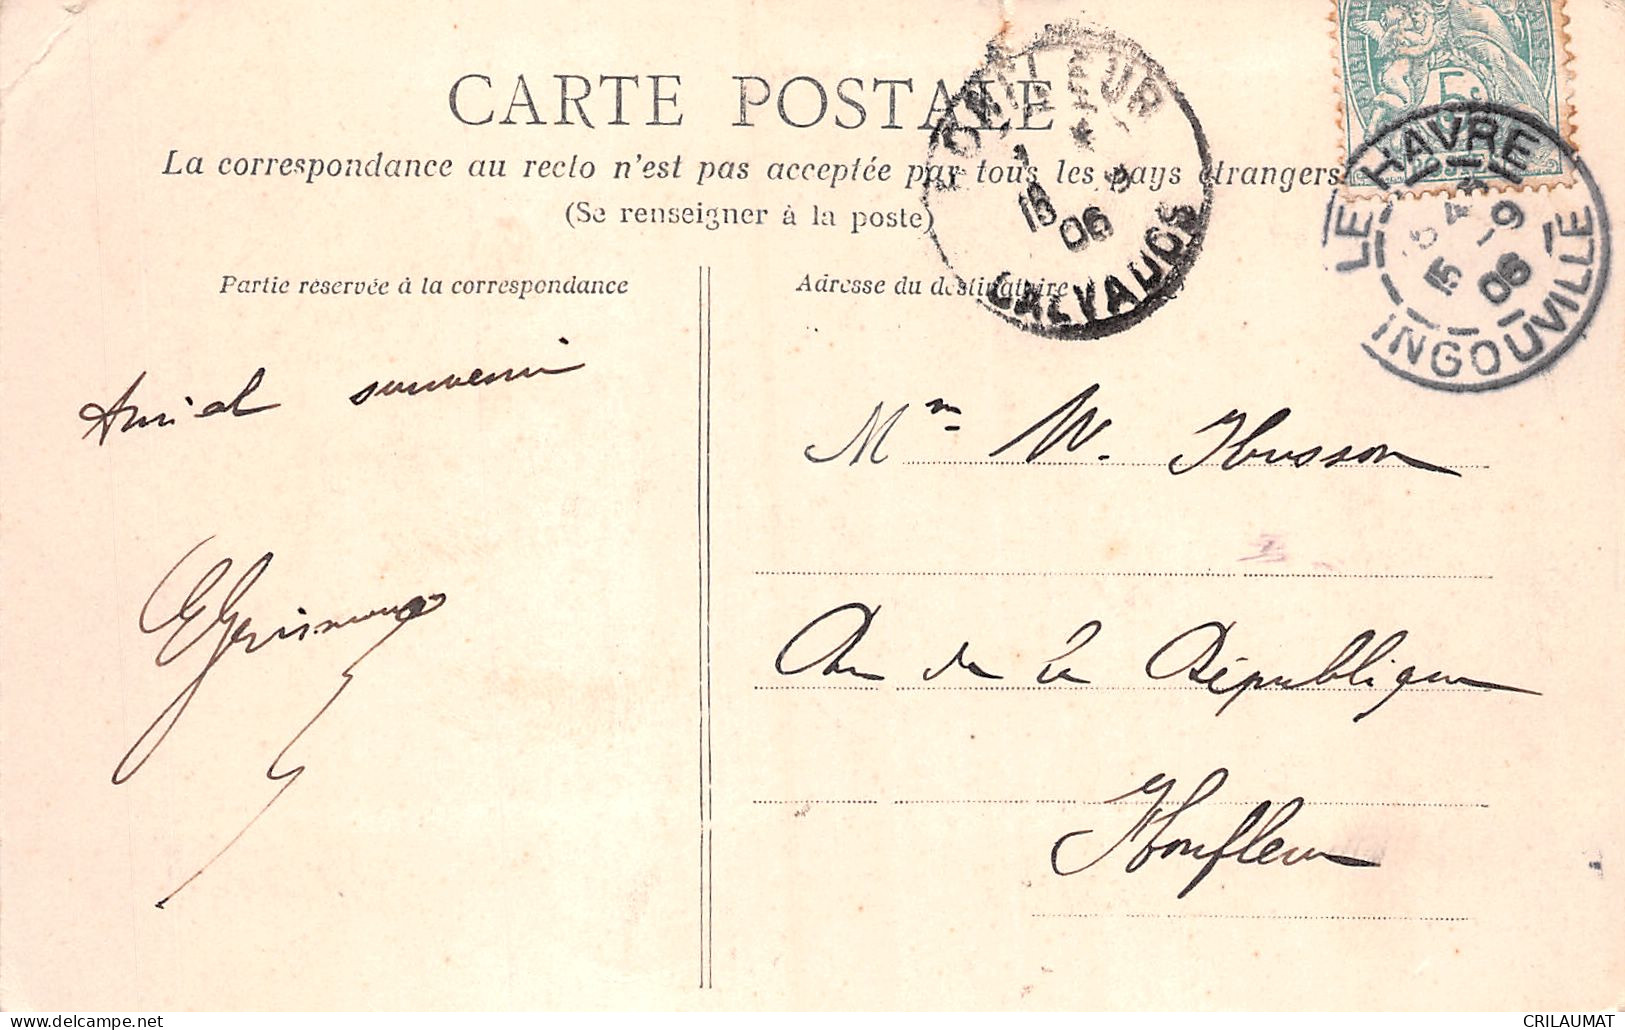 CARTE POSTALE
La correspondance au recto n'est pas acceptée par tous les pays étrangers
(Se renseigner à la poste)
HONFLEUR
15 9
06
CALVADOS
5c
LE HAVRE
15 -9
06
INGOUVILLE
Partie réservée à la correspondance
Adresse du destinataire
Amical souvenir
Mme W. Husson
de la République
Honfleur
CRILAUMAT